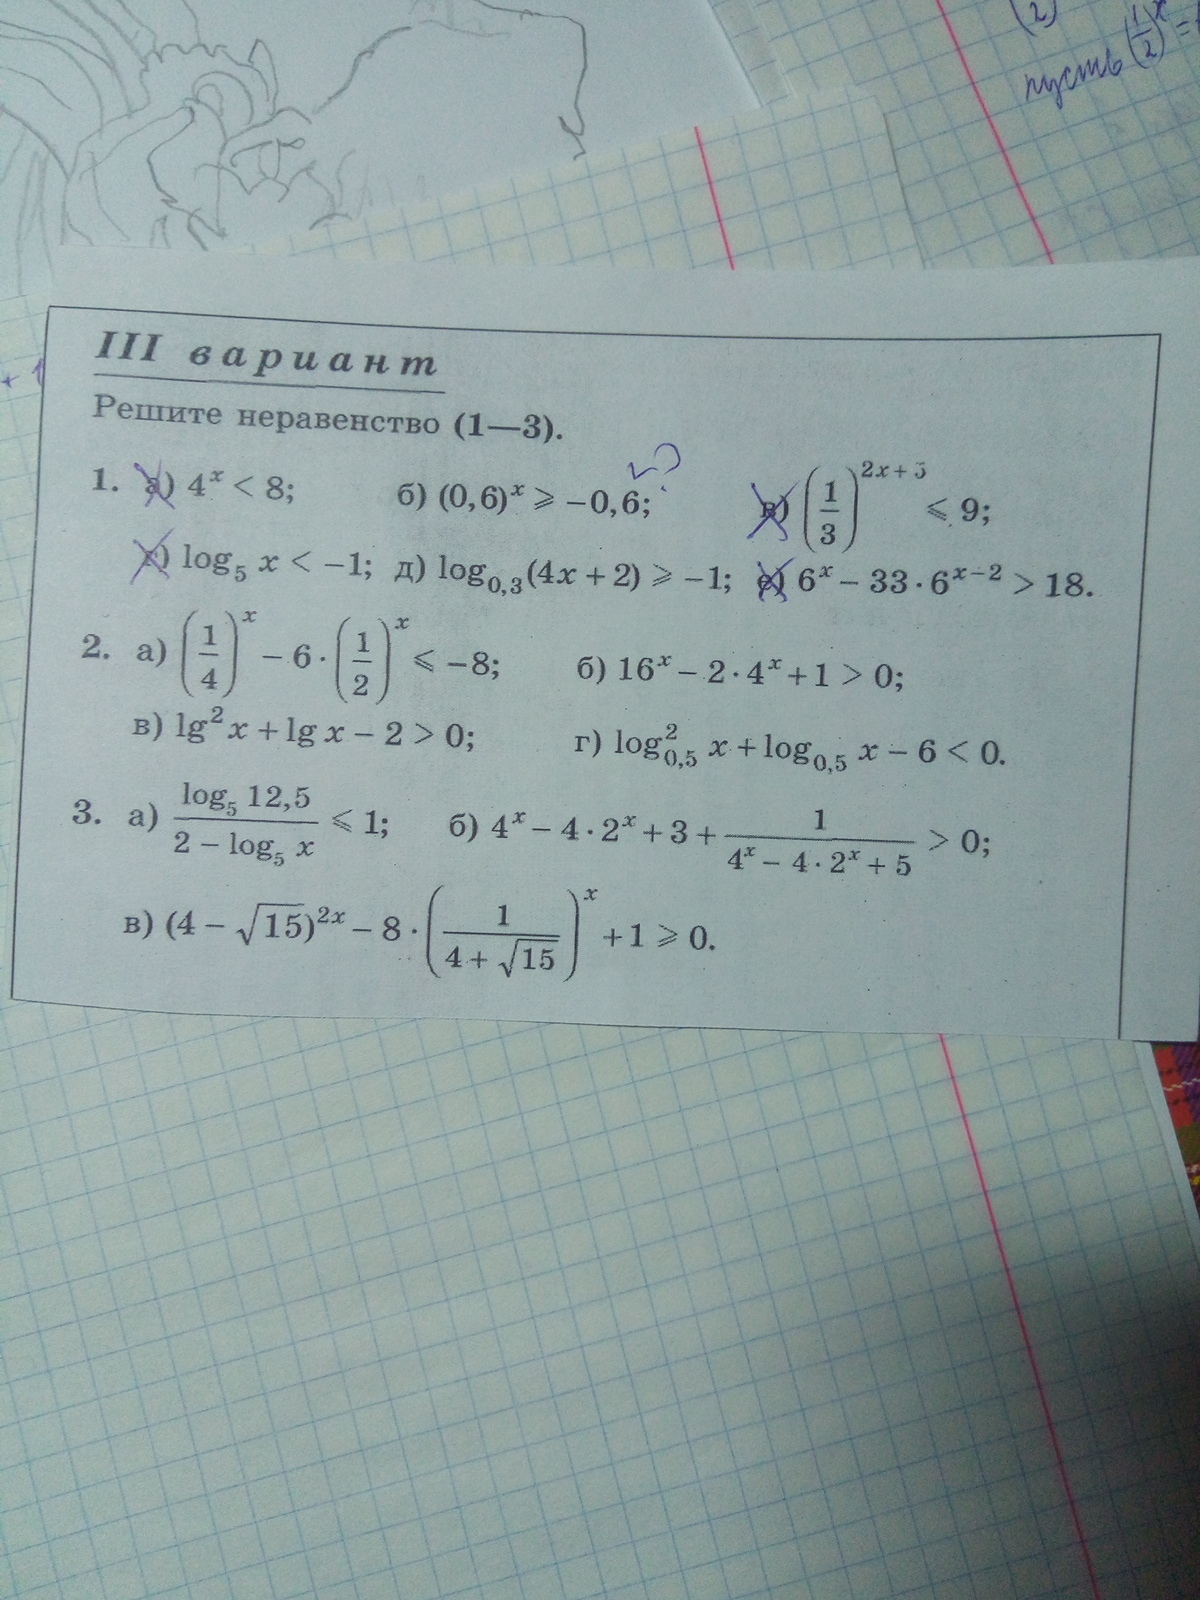 (2)
пусть (1/2)^x =
III вариант
Решите неравенство (1—3).
1. а) 4^x < 8; б) (0,6)^x ⩾ −0,6; ? в) (1/3)^(2x+5) ⩽ 9;
г) log_5 x < −1; д) log_0,3 (4x + 2) ⩾ −1; е) 6^x − 33 · 6^(x−2) > 18.
2. а) (1/4)^x − 6 · (1/2)^x ⩽ −8; б) 16^x − 2 · 4^x + 1 > 0;
в) lg^2 x + lg x − 2 > 0; г) log^2_0,5 x + log_0,5 x − 6 < 0.
3. а) (log_5 12,5)/(2 − log_5 x) ⩽ 1; б) 4^x − 4 · 2^x + 3 + 1/(4^x − 4 · 2^x + 5) > 0;
в) (4 − √15)^(2x) − 8 · (1/(4 + √15))^x + 1 ⩾ 0.